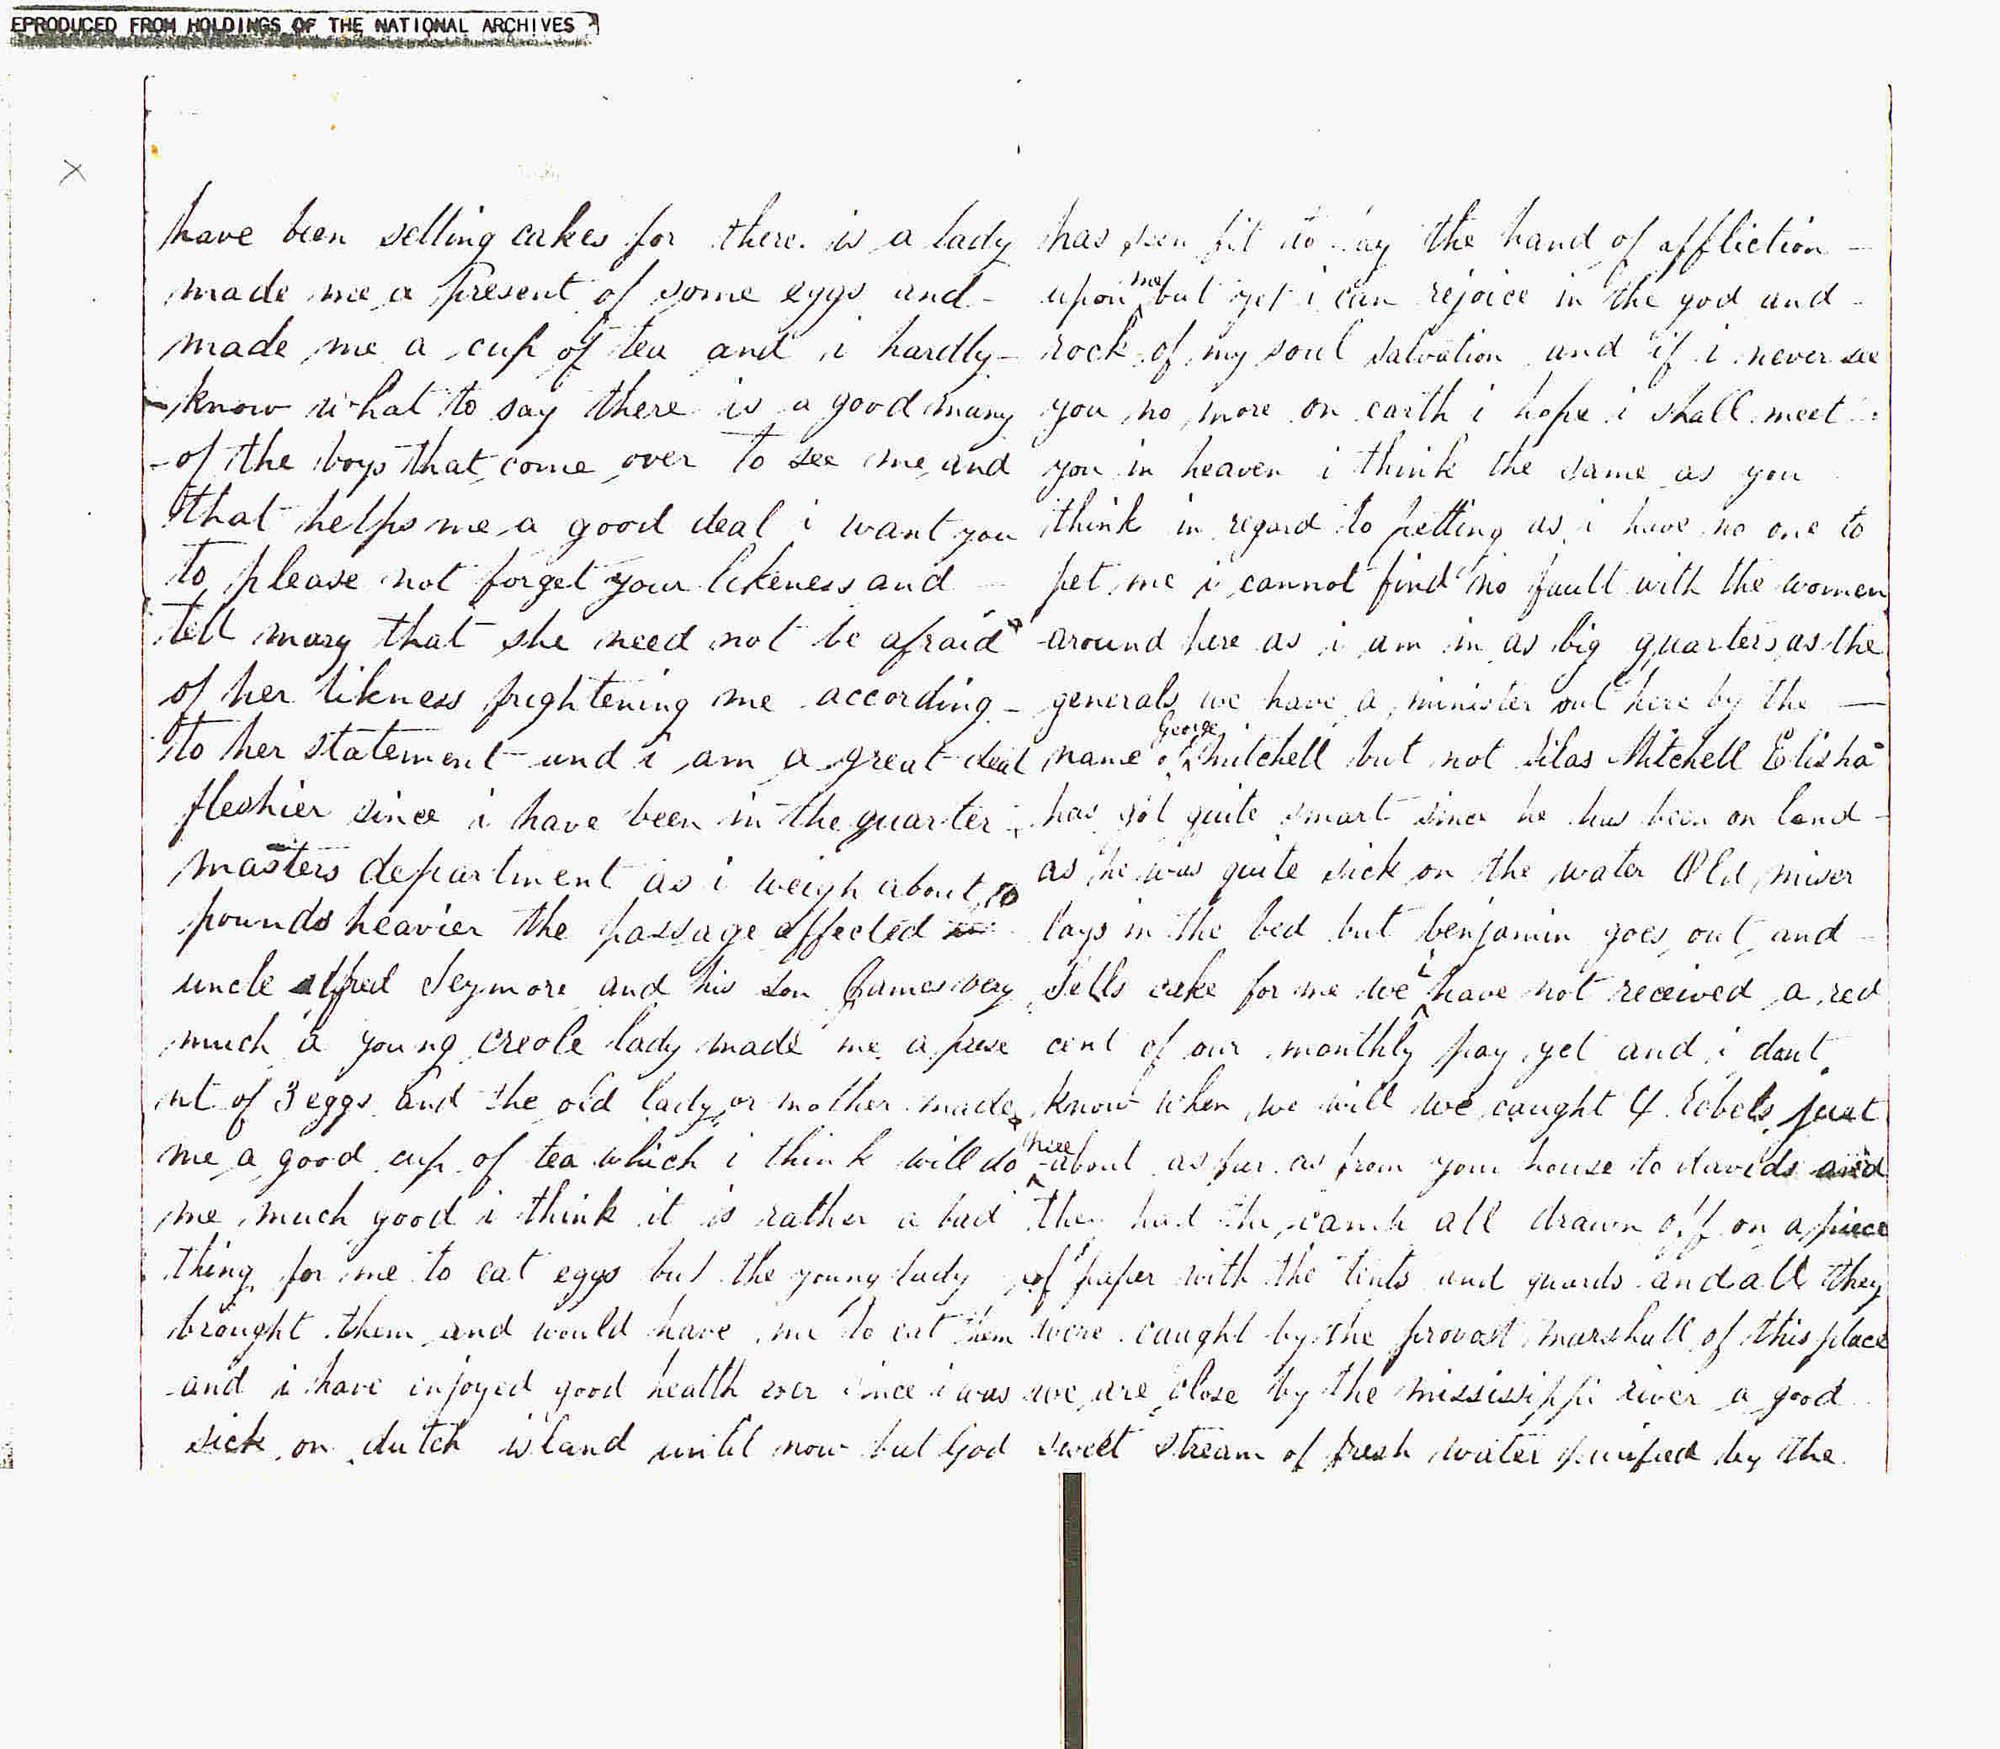 EPRODUCED FROM HOLDINGS OF THE NATIONAL ARCHIVES
have been selling cakes for there is a lady
made me a present of some eggs and
made me a cup of tea and i hardly
know what to say there is a good many
of the boys that come over to see me and
that helps me a good deal i want you
to please not forget your likeness and
tell mary that she need not be afraid
of her likness frightening me according
to her statement and i am a great deal
fleshier since i have been in the quarter
masters department as i weigh about 10
pounds heavier the passage affected
uncle alfred Seymore and his son James very
much a young creole lady made me a prese
nt of 3 eggs and the old lady or mother made
me a good cup of tea which i think will do
me much good i think it is rather a bad
thing for me to eat eggs but the young lady
brought them and would have me to eat them
and i have injoyed good health ever since i was
sick on dutch island until now but God
has seen fit to lay the hand of affliction
upon me but yet i can rejoice in the god and
rock of my soul salvation and if i never see
you no more on earth i hope i shall meet
you in heaven i think the same as you
think in regard to petting as i have no one to
pet me i cannot find no fault with the women
around here as i am in as big quarters as the
generals we have a minister out here by the
name of George mitchell but not silas Mitchell Elisha
has got quite smart since he has been on land
as he was quite sick on the water Old miser
lays in the bed but benjamin goes out and
sells cake for me we have not received a red
cent of our monthly pay yet and i dont
know when we will we caught 4 rebels just
about as fur as from your house to davids and
they had the camp all drawn off on a piece
of paper with the tents and guards and all they
were caught by the provost marshall of this place
we are close by the mississippi river a good
sweet stream of fresh water purified by the